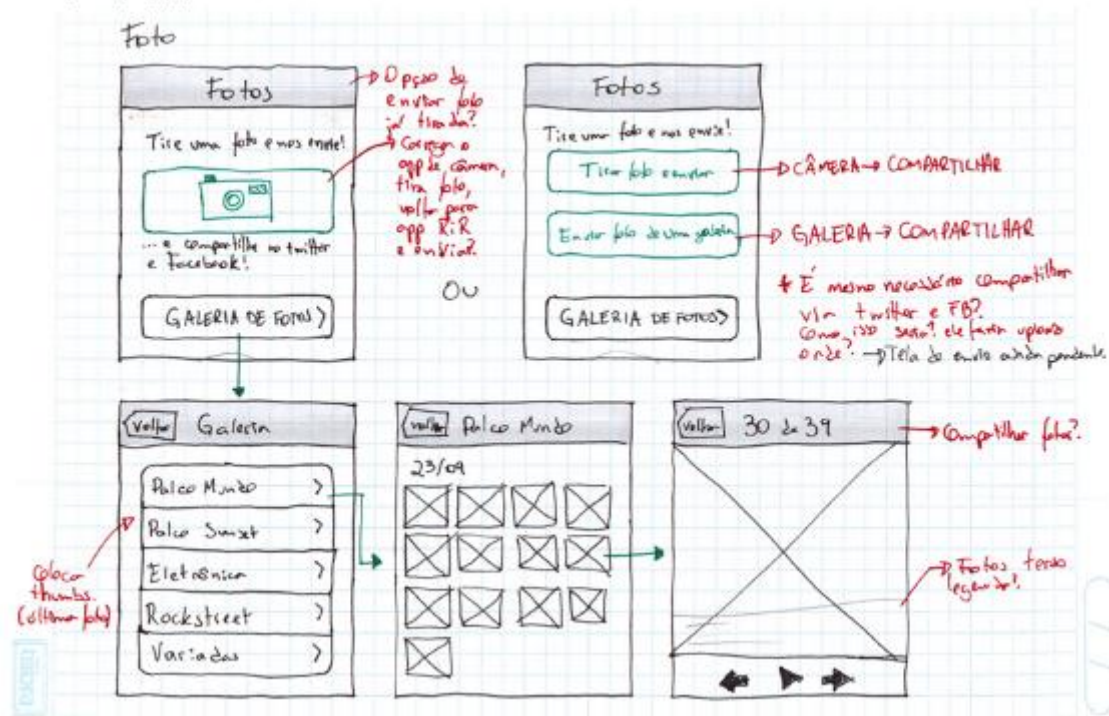 Foto
Fotos
Tire uma foto e nos envie!
... e compartilhe no twitter
e Facebook!
GALERIA DE FOTOS
Opção de
enviar foto
já tirada?
Carregar o
app de câmera,
tira foto,
volta para
app RiR
e envia?
OU
Fotos
Tire uma foto e nos envie!
Tirar foto e enviar
Enviar foto de uma galeria
GALERIA DE FOTOS
CÂMERA → COMPARTILHAR
GALERIA → COMPARTILHAR
* É mesmo necessário compartilhar
via twitter e FB?
Como isso seria? ele faria upload
onde? → Tela de envio ainda pendente.
Voltar Galeria
Palco Mundo
Palco Sunset
Eletrônica
Rockstreet
Variadas
colocar
thumbs.
(última foto)
voltar Palco Mundo
23/09
voltar 30 de 39
Compartilhar fotos?
Fotos terão
legenda?